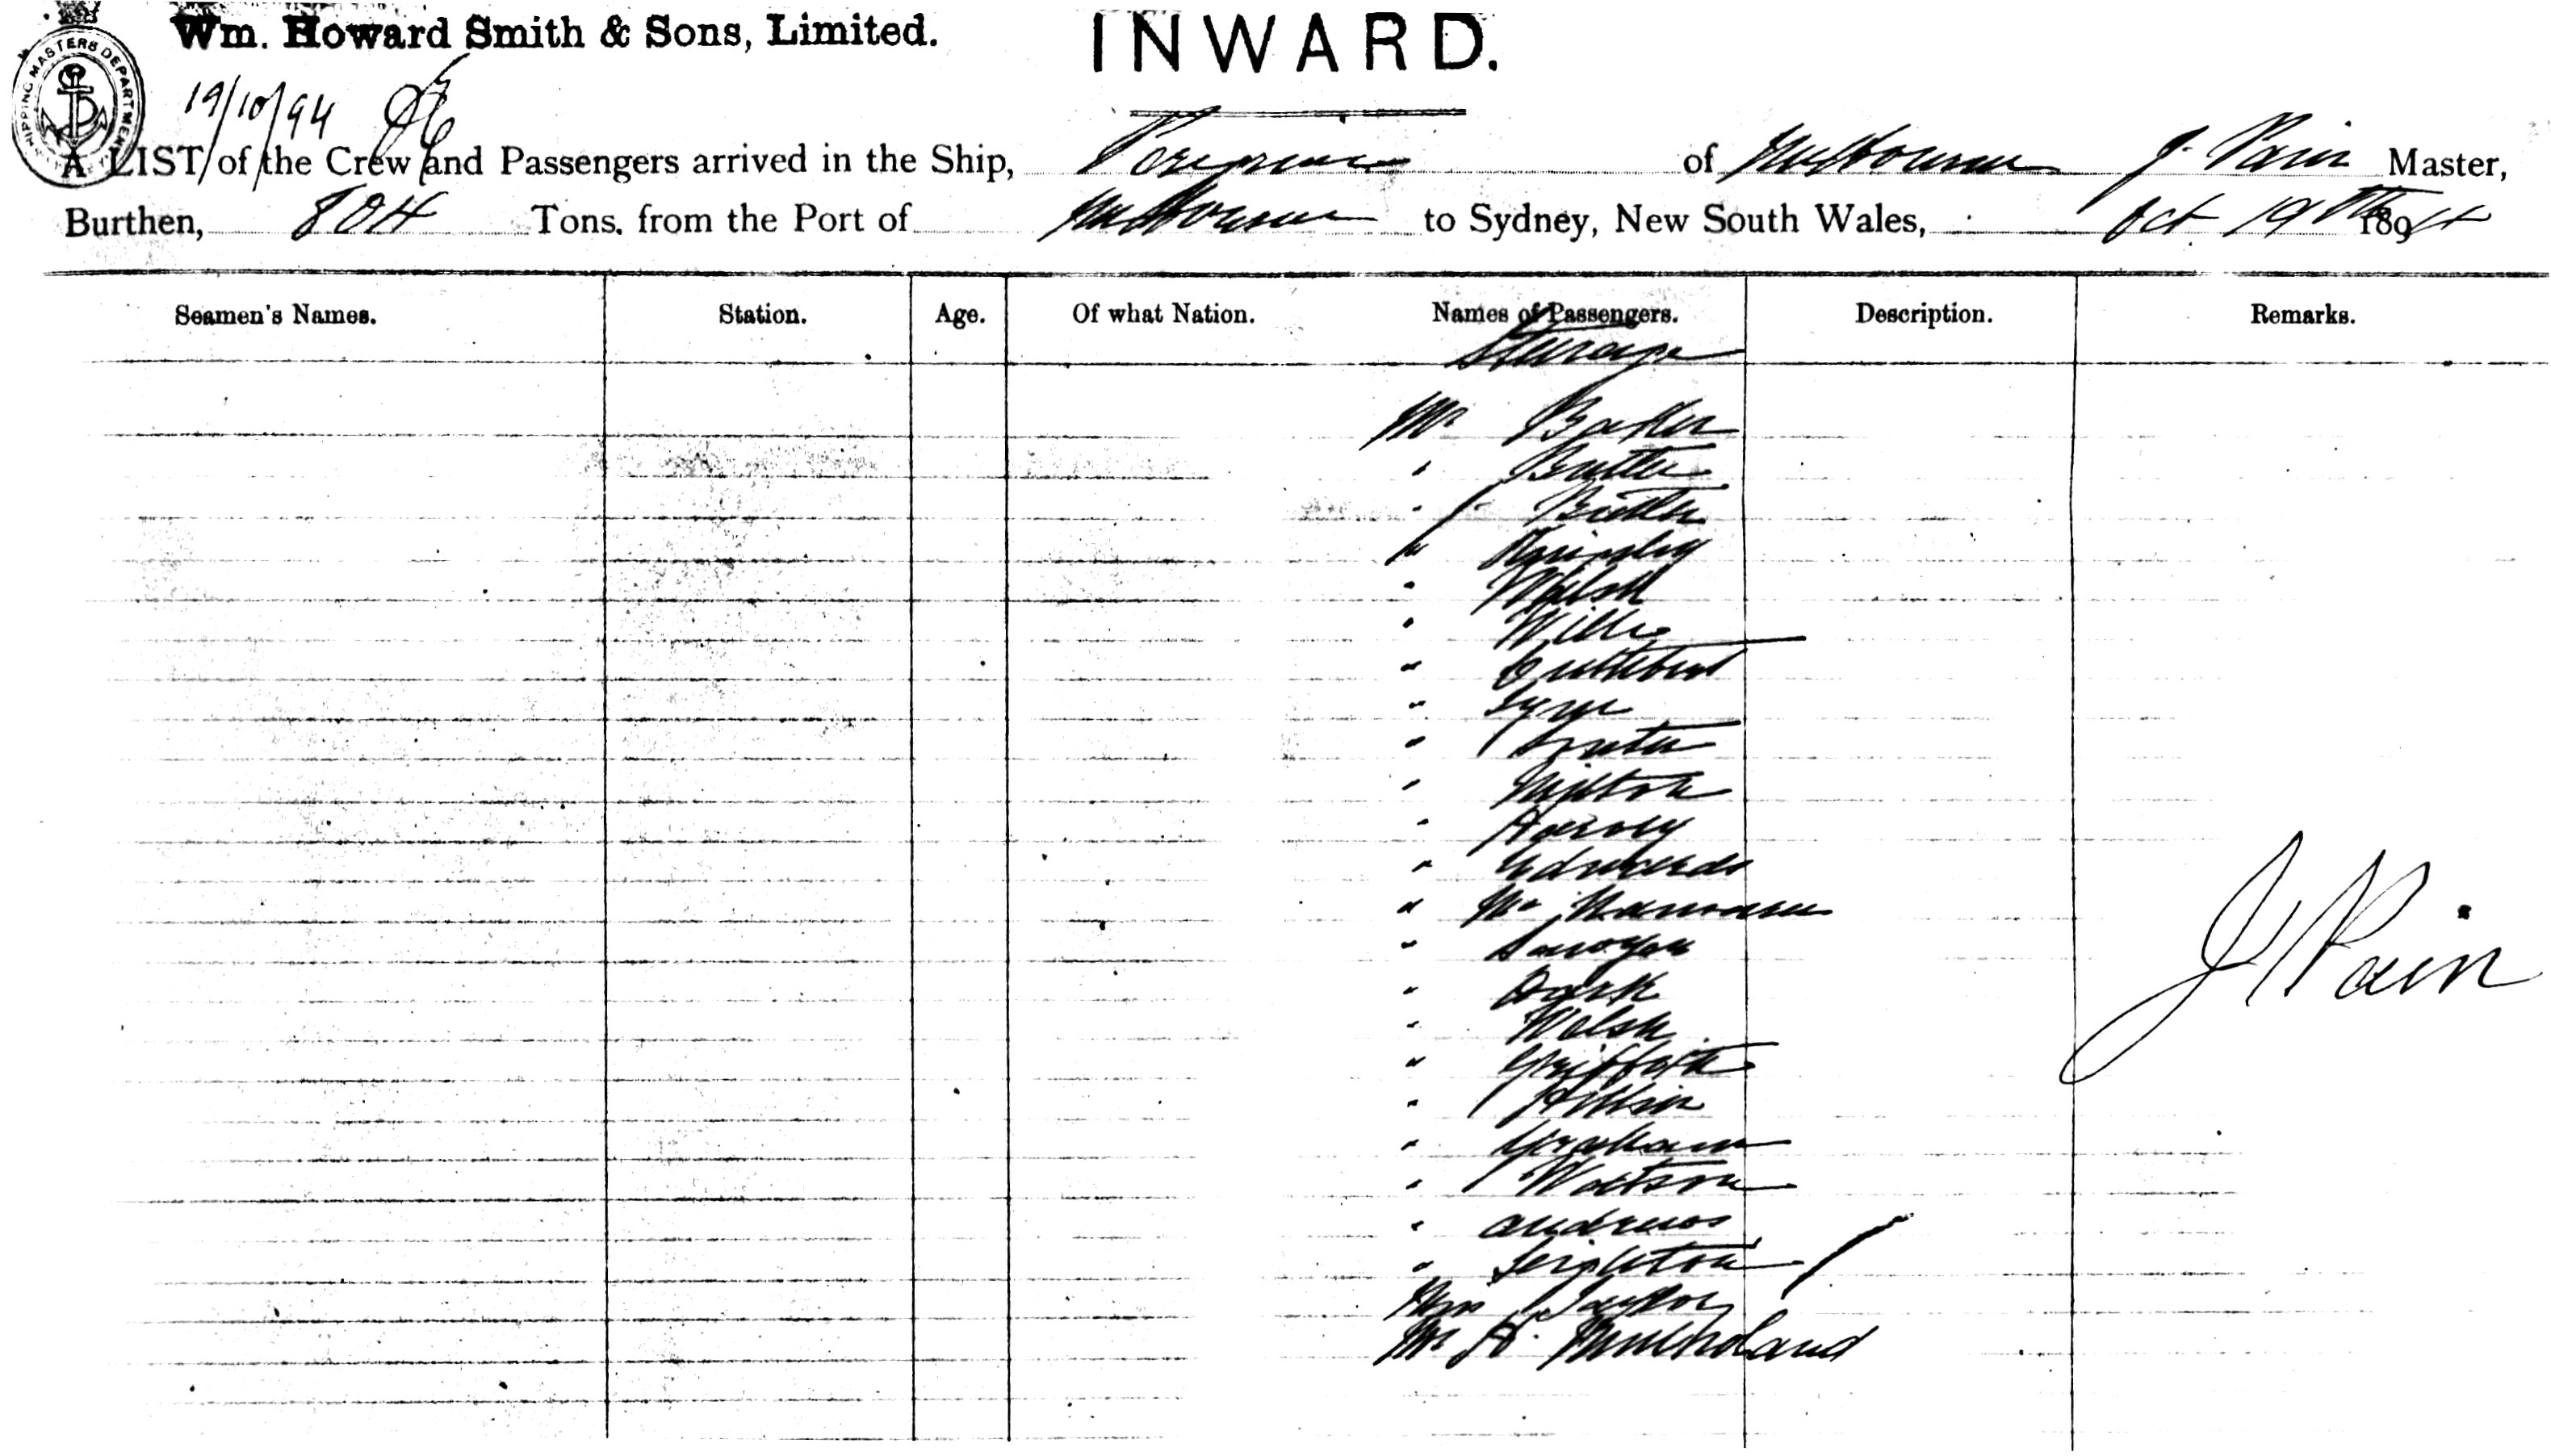 Wm. Howard Smith & Sons, Limited.
INWARD.
SHIPPING MASTERS DEPARTMENT
19/10/94
A LIST of the Crew and Passengers arrived in the Ship, Peregrine of Melbourne J. Pain Master,
Burthen, 804 Tons. from the Port of Melbourne to Sydney, New South Wales, Oct 19th 1894
Seamen's Names. Station. Age. Of what Nation. Names of Passengers. Description. Remarks.
Steerage
Mr Baker
" Butler
" J. Butler
"
" Walsh
" Willis
" Cuthbert
" Syme
"
" Milton
" Harvey
" Edwards
" Mc Namara
"
" Dark
" Welsh
" Griffith
"
" Graham
" Watson
" Andrews
" Leighton
Taylor
Mr A. Mulholand
J Pain